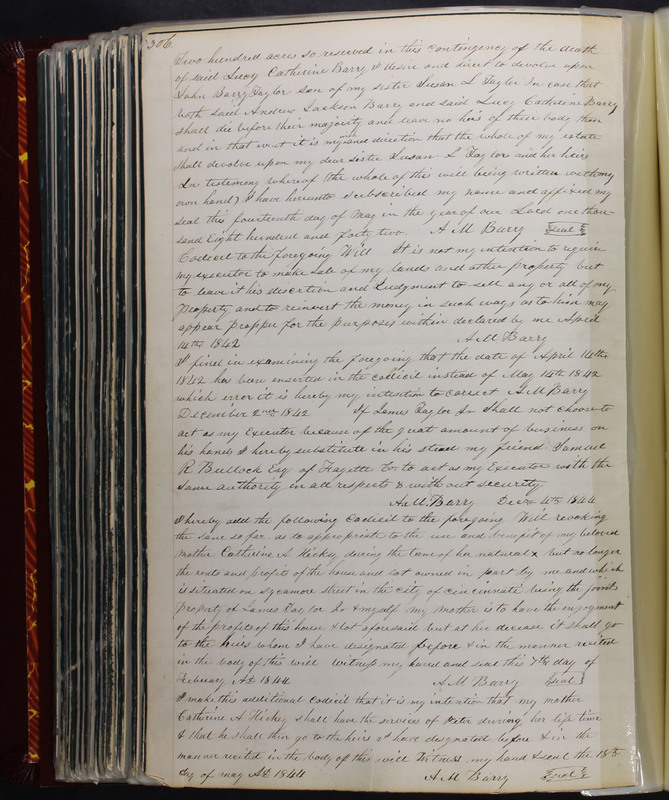 306
Two hundred acres so reserved in this contingency of the death
of said Lucy Catherine Barry I desire and direct to devolve upon
John Barry Taylor son of my sister Susan L Taylor In case that
both said Andrew Jackson Barry and said Lucy Catherine Barry
shall die before their majority and leave no heirs of their body then
and in that event it is my will and direction that the whole of my estate
shall devolve upon my dear sister Susan L Taylor and her heirs
In testimony whereof (the whole of this will being written with my
own hand) I have hereunto subscribed my name and affixed my
seal this fourteenth day of May in the year of our Lord one thou-
sand Eight hundred and forty two A M Barry Seal
Codicil to the foregoing Will It is not my intention to require
my executor to make sale of my lands and other property but
to leave it his discretion and Judgment to sell any or all of my
Property and to reinvest the money in such ways as to him may
appear propper for the purposes within declared by me April
14th 1842 A M Barry
I find in examining the foregoing that the date of April 14th
1842 has been enserted in the codicil instead of May 14th 1842
which error it is hereby my intention to correct A M Barry
December 2nd 1842 If James Taylor Sr shall not choose to
act as my Executor because of the great amount of business on
his hands I hereby substitute in his stead my friend Samuel
R. Bullock Esq of Fayette Co. to act as my Executor with the
same authority in all respects & without security
A. M. Barry Decr 4th 1844
I hereby add the following Codicil to the foregoing Will revoking
the same so far as to appropriate to the use and benefit of my beloved
Mother Catherine A Hicky during the time of her natural x but no longer
the rents and profits of the house and lot owned in part by me and which
is situated on Sycamore street in the city of Cincinnati being the joint
Property of James Taylor Sr & myself my Mother is to have the enjoyment
of the profits of this house & lot aforesaid but at her decease it shall go
to the heirs whom I have designated before & in the manner recited
in the body of this will witness my hand and seal this 7th day of
February AD 1844 A M Barry Seal
I make this additional codicil that it is my intention that my mother
Catherine A Hickey shall have the services of Peter during her life time
& that he shall then go to the heirs I have designated before & in the
manner recited in the body of this will Witness my hand & seal the 18th
day of may AD 1844 A M Barry Seal